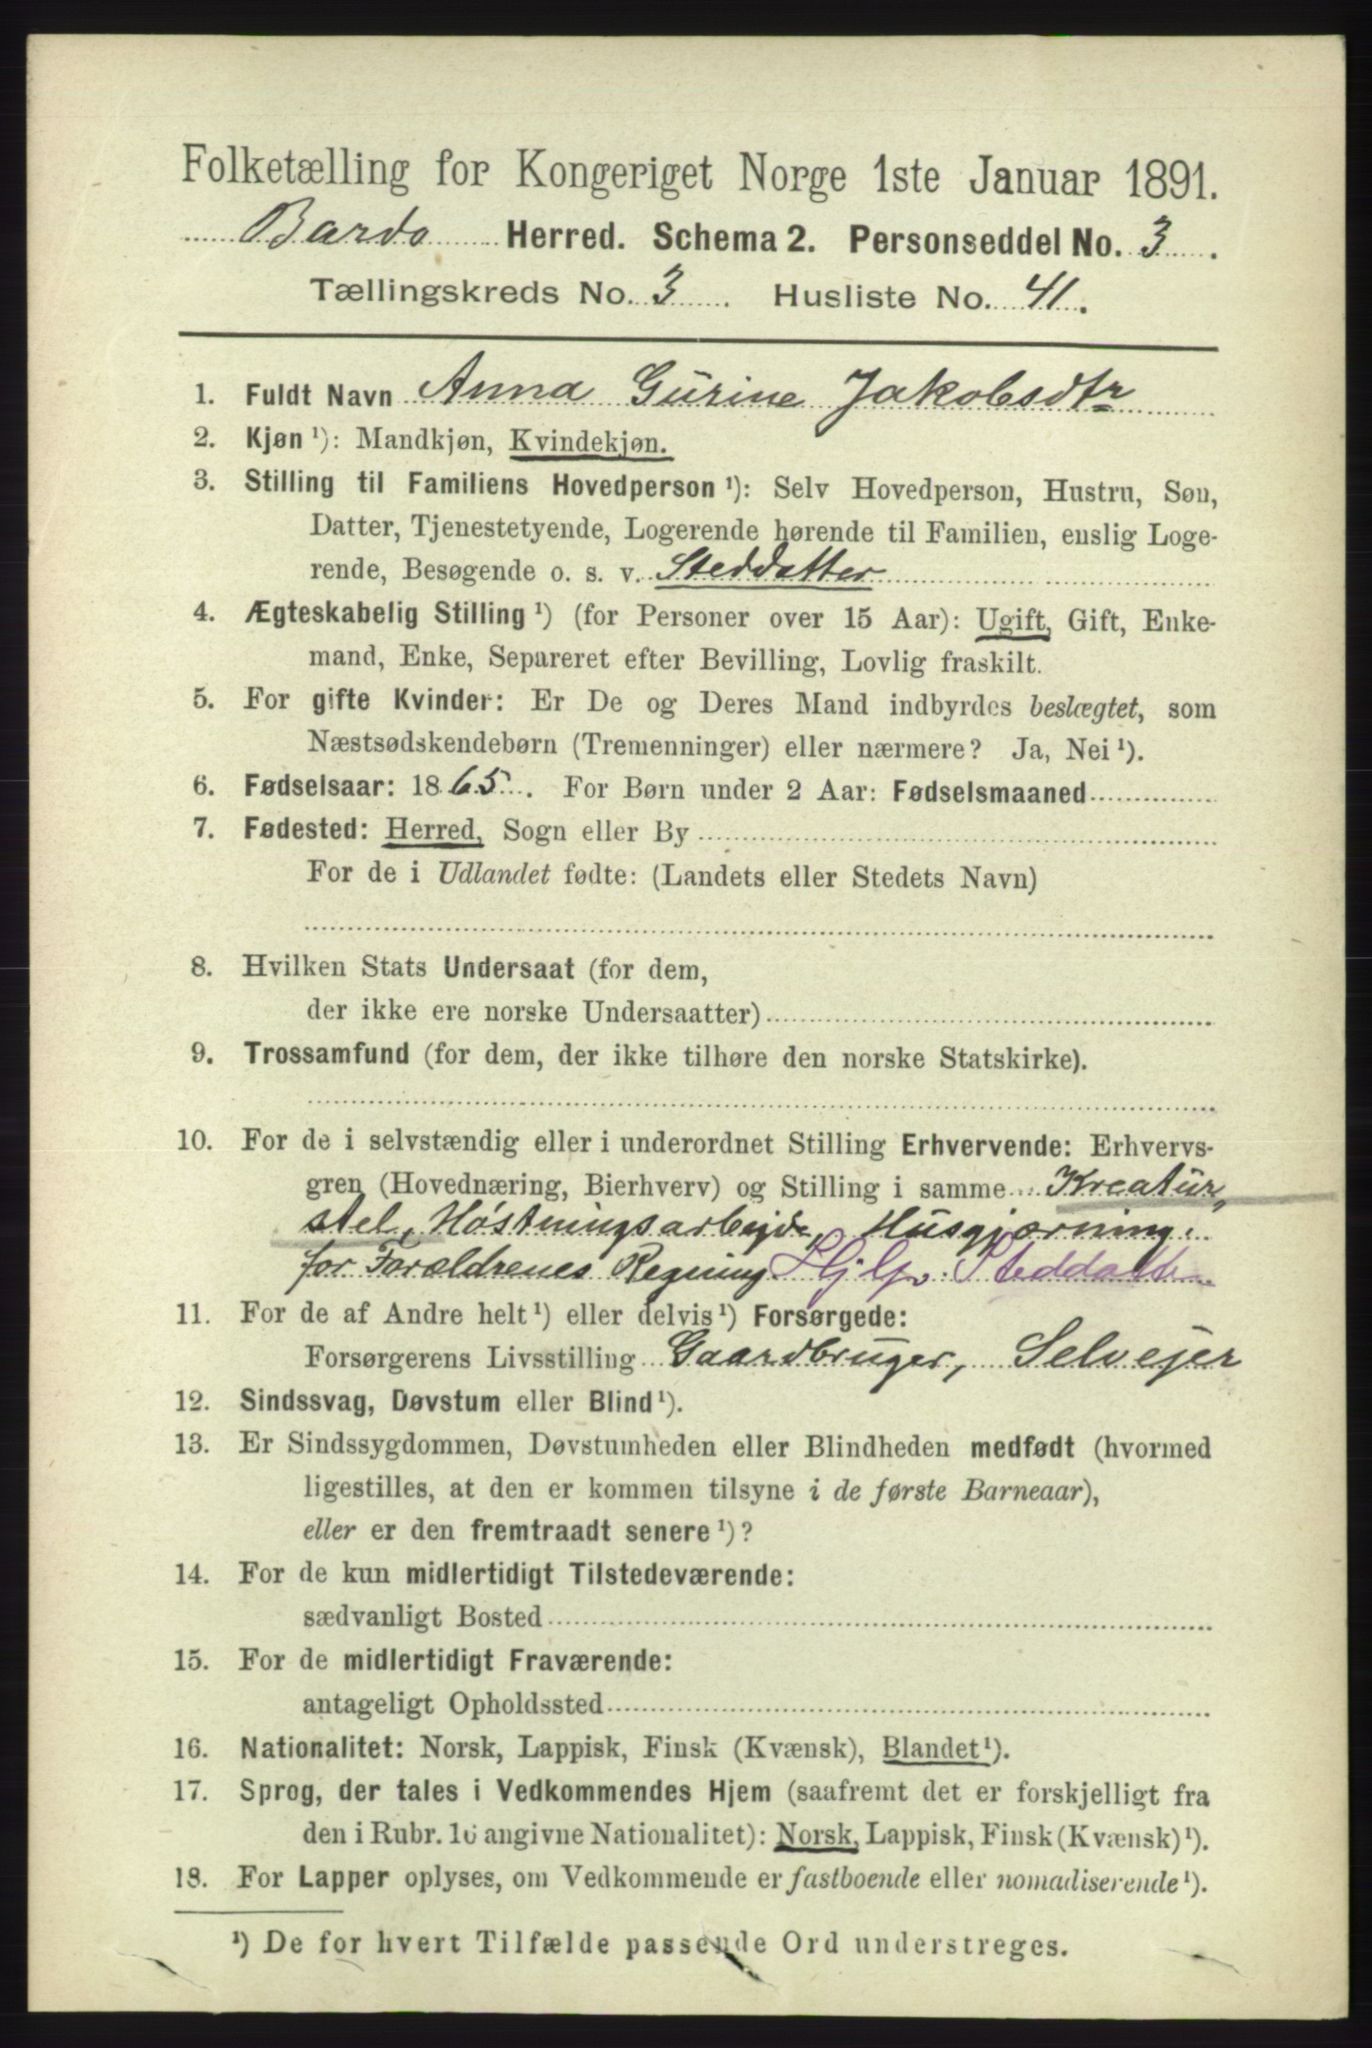 Folketælling for Kongeriget Norge 1ste Januar 1891.
Bardo Herred. Schema 2. Personseddel No. 3.
Tællingskreds No. 3. Husliste No. 41.
1. Fuldt Navn Anna Gurine Jakobsdtr
2. Kjøn ¹): Mandkjøn, Kvindekjøn.
3. Stilling til Familiens Hovedperson ¹): Selv Hovedperson, Hustru, Søn,
Datter, Tjenestetyende, Logerende hørende til Familien, enslig Loge-
rende, Besøgende o. s. v. Steddatter
4. Ægteskabelig Stilling ¹) (for Personer over 15 Aar): Ugift, Gift, Enke-
mand, Enke, Separeret efter Bevilling, Lovlig fraskilt.
5. For gifte Kvinder: Er De og Deres Mand indbyrdes beslægtet, som
Næstsødskendebørn (Tremenninger) eller nærmere? Ja, Nei ¹).
6. Fødselsaar: 1865. For Børn under 2 Aar: Fødselsmaaned
7. Fødested: Herred, Sogn eller By
For de i Udlandet fødte: (Landets eller Stedets Navn)
8. Hvilken Stats Undersaat (for dem,
der ikke ere norske Undersaatter)
9. Trossamfund (for dem, der ikke tilhøre den norske Statskirke).
10. For de i selvstændig eller i underordnet Stilling Erhvervende: Erhvervs-
gren (Hovednæring, Bierhverv) og Stilling i samme Kreatur-
stel, Høstningsarbejde, Husgjærning.
for Forældrenes Regning Hjlp. Steddatter
11. For de af Andre helt ¹) eller delvis ¹) Forsørgede:
Forsørgerens Livsstilling Gaardbruger, Selvejer
12. Sindssvag, Døvstum eller Blind ¹).
13. Er Sindssygdommen, Døvstumheden eller Blindheden medfødt (hvormed
ligestilles, at den er kommen tilsyne i de første Barneaar),
eller er den fremtraadt senere ¹)?
14. For de kun midlertidigt Tilstedeværende:
sædvanligt Bosted
15. For de midlertidigt Fraværende:
antageligt Opholdssted
16. Nationalitet: Norsk, Lappisk, Finsk (Kvænsk), Blandet ¹).
17. Sprog, der tales i Vedkommendes Hjem (saafremt det er forskjelligt fra
den i Rubr. 16 angivne Nationalitet): Norsk, Lappisk, Finsk (Kvænsk) ¹).
18. For Lapper oplyses, om Vedkommende er fastboende eller nomadiserende ¹).
¹) De for hvert Tilfælde passende Ord understreges.